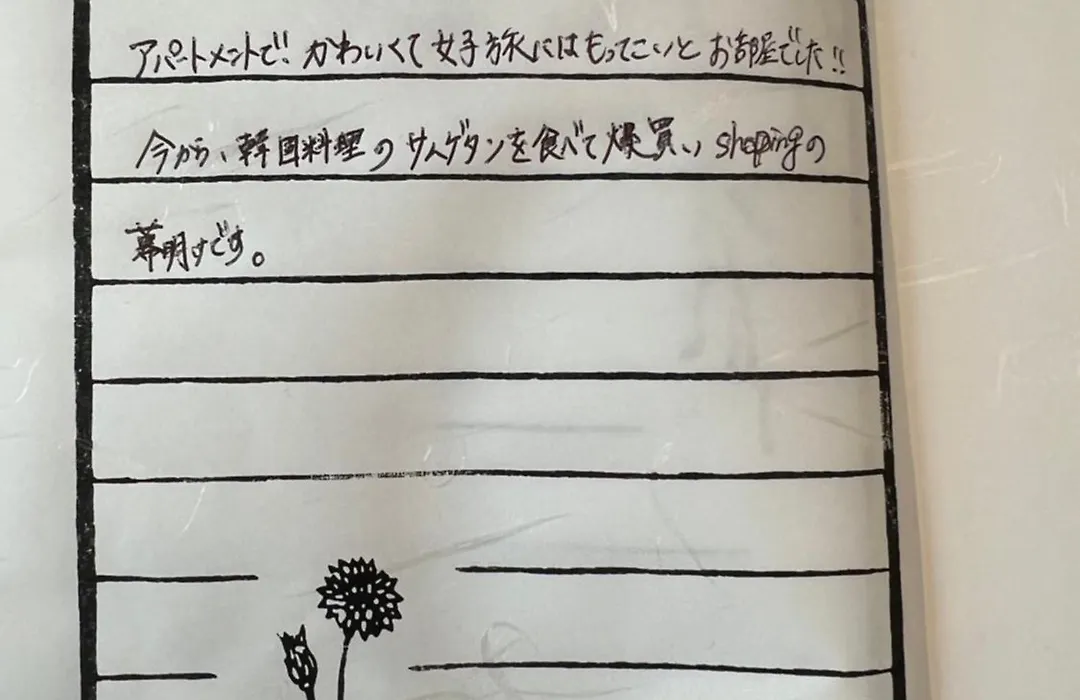 アパートメントで!! かわいくて女子旅にはもってこいとお部屋でした!!
今から、韓国料理のサムゲタンを食べて爆買い shopingの
幕明けです。